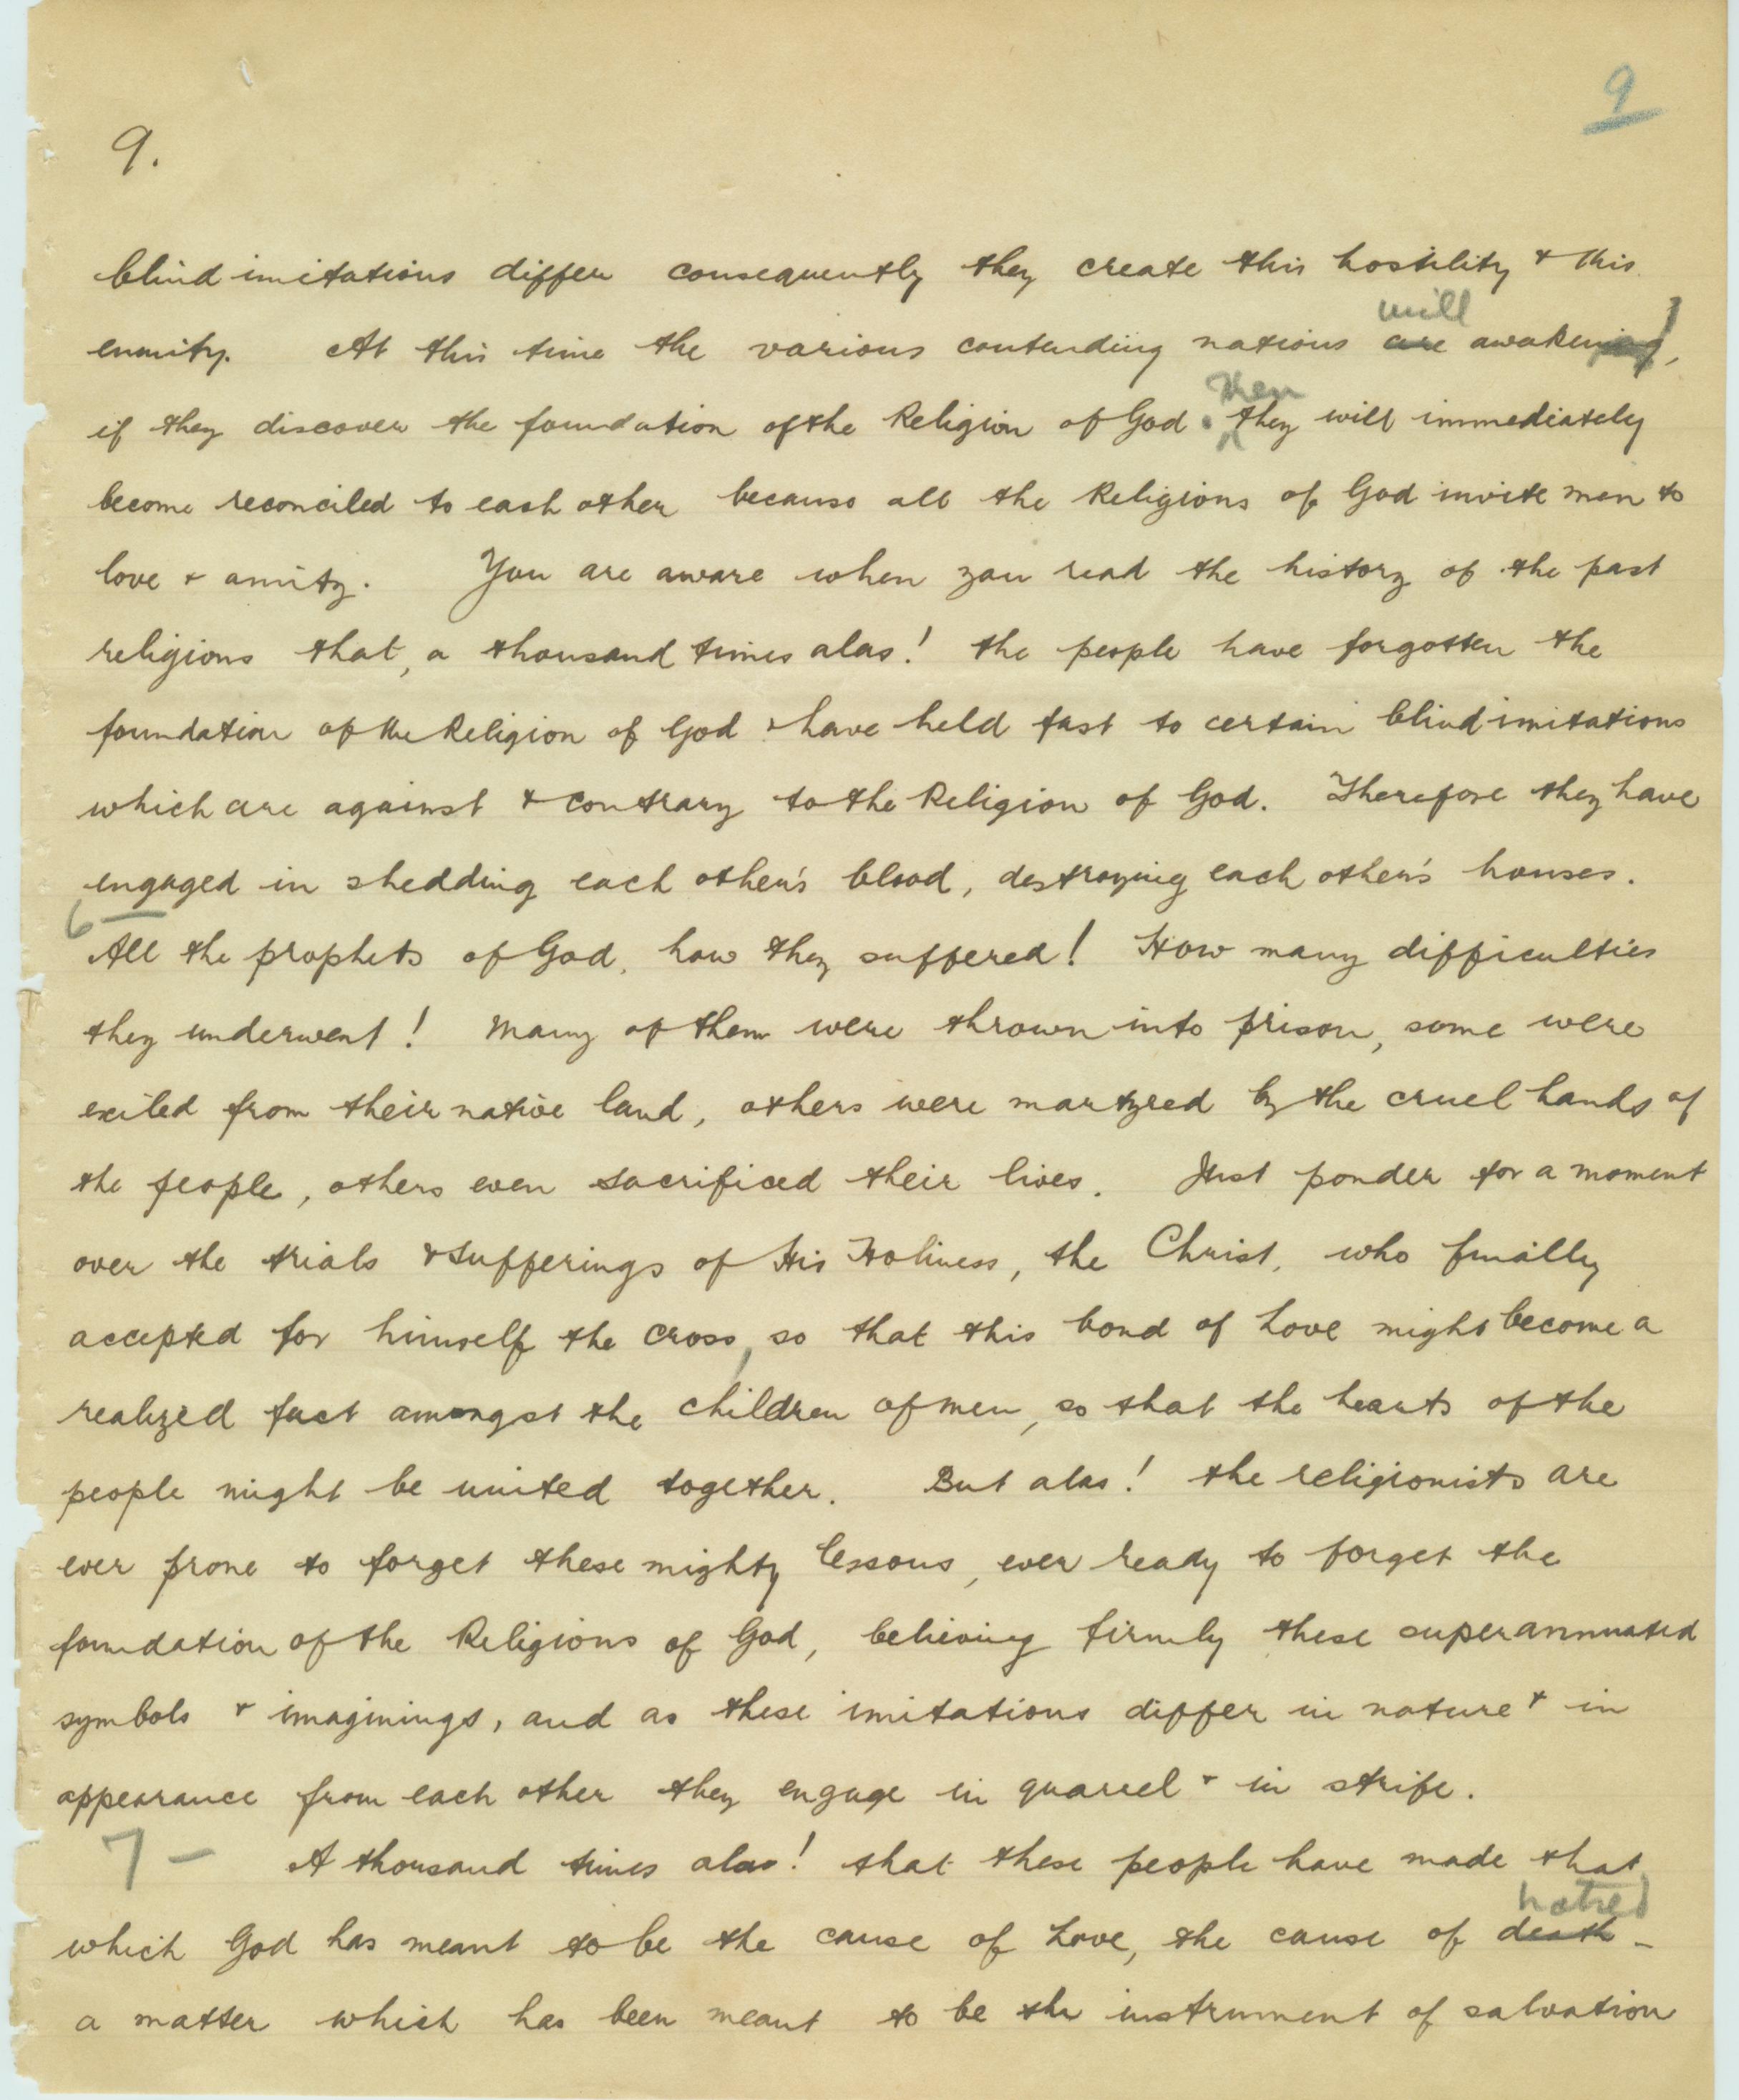 9
9.
blind imitations differ consequently they create this hostility & this
will
enmity. At this time the various contending nations are awakening,
then
if they discover the foundation of the Religion of God. they will immediately
become reconciled to each other because all the Religions of God invite men to
love & amity. You are aware when you read the history of the past
religions that, a thousand times alas! the people have forgotten the
foundation of the Religion of God & have held fast to certain blind imitations
which are against & contrary to the Religion of God. Therefore they have
engaged in shedding each other's blood, destroying each other's houses.
6 —
All the prophets of God, how they suffered! How many difficulties
they underwent! Many of them were thrown into prison, some were
exiled from their native land, others were martyred by the cruel hands of
the people, others even sacrificed their lives. Just ponder for a moment
over the trials & sufferings of His Holiness, the Christ, who finally
accepted for himself the cross, so that this bond of Love might become a
realized fact amongst the children of men, so that the hearts of the
people might be united together. But alas! the religionists are
ever prone to forget these mighty lessons, ever ready to forget the
foundation of the Religions of God, believing firmly these superannuated
symbols & imaginings, and as these imitations differ in nature & in
appearance from each other they engage in quarrel & in strife.
7 — A thousand times alas! that these people have made that
hatred
which God has meant to be the cause of Love, the cause of death –
a matter which has been meant to be the instrument of salvation